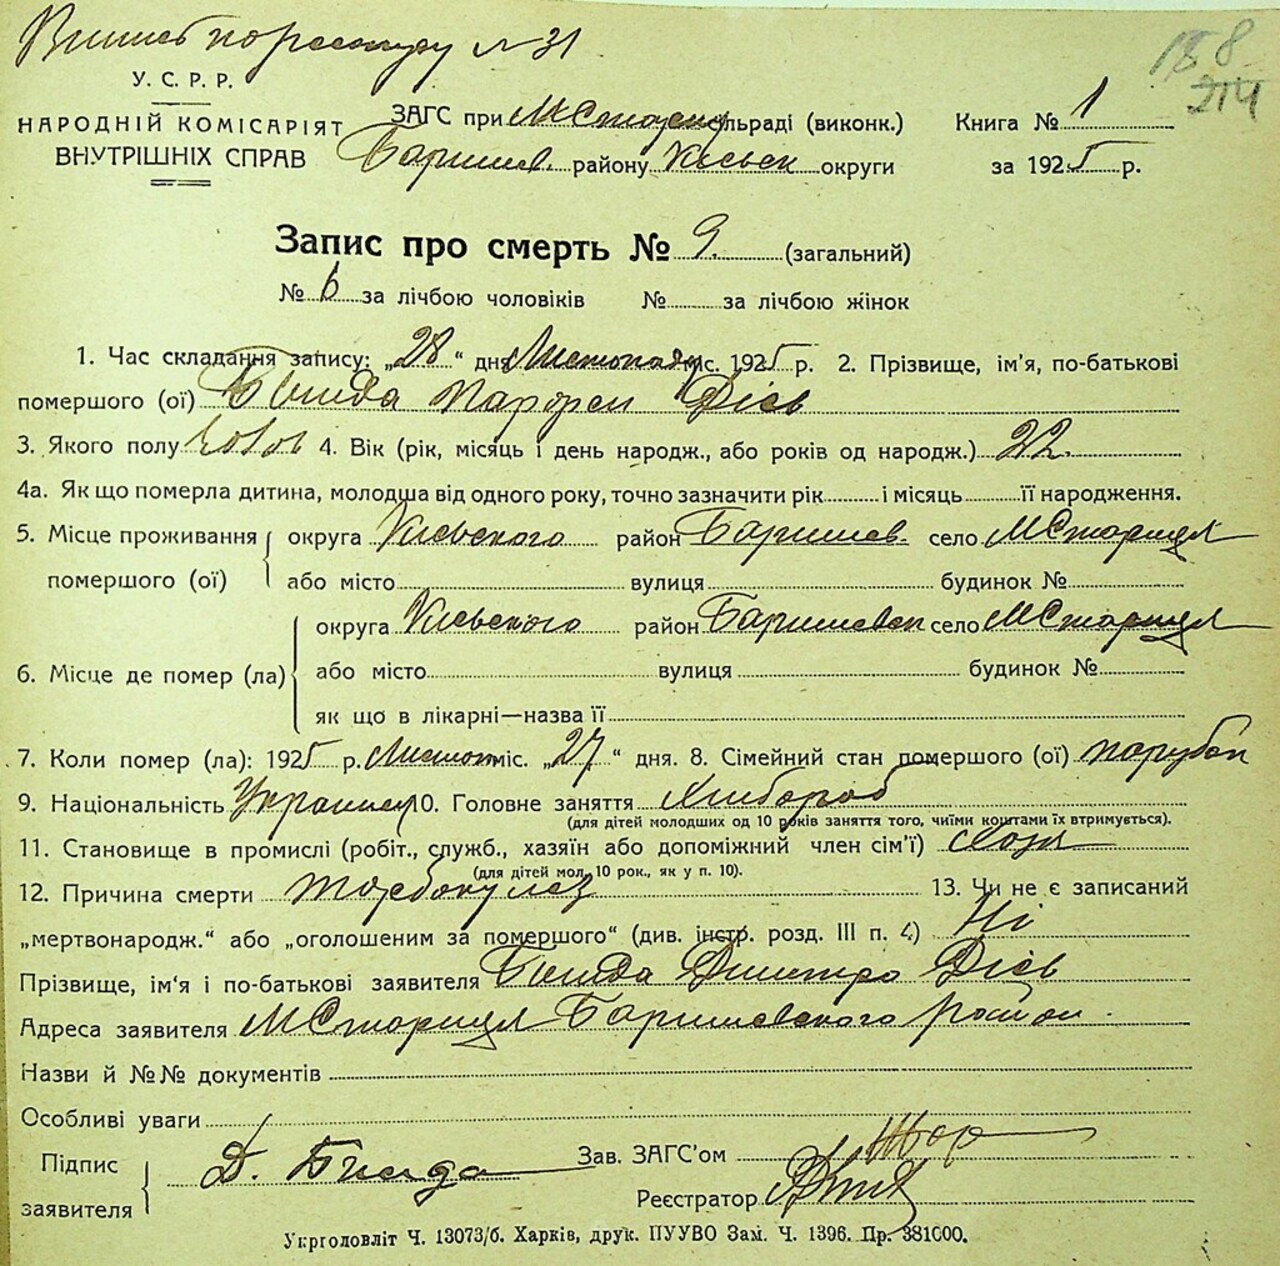 № 31
188
214
У. С. Р. Р.
НАРОДНІЙ КОМІСАРІЯТ
ВНУТРІШНІХ СПРАВ
ЗАГС при МСтариц сільраді (виконк.) Книга № 1
Баришев. району Київськ округи за 1925 р.
Запис про смерть № 9. (загальний)
№ 6 за лічбою чоловіків № за лічбою жінок
1. Час складання запису: „28“ дня Листопада міс. 1925 р. 2. Прізвище, ім'я, по-батькові
помершого (ої)
3. Якого полу чолов 4. Вік (рік, місяць і день народж., або років од народж.) 22.
4а. Як що померла дитина, молодша від одного року, точно зазначити рік і місяць її народження.
5. Місце проживання помершого (ої) округа Київського район Баришев. село МСтариця
або місто вулиця будинок №
6. Місце де помер (ла) округа Київського район Баришевск село МСтариця
або місто вулиця будинок №
як що в лікарні—назва її
7. Коли помер (ла): 1925 р. Листоп міс. „27“ дня. 8. Сімейний стан помершого (ої) парубок
9. Національність Украинец 10. Головне заняття Хлібороб
(для дітей молодших од 10 років заняття того, чиїми коштами їх втримується).
11. Становище в промислі (робіт., служб., хазяїн або допоміжний член сім'ї)
(для дітей мол. 10 рок., як у п. 10).
12. Причина смерти 13. Чи не є записаний
„мертвонародж.“ або „оголошеним за помершого“ (див. інстр. розд. III п. 4) Ні
Прізвище, ім'я і по-батькові заявителя Дмитро
Адреса заявителя МСтариця Баришевского район
Назви й №№ документів
Особливі уваги
Підпис заявителя Д. Зав. ЗАГС'ом
Реєстратор
Укрголовліт Ч. 13073/б. Харків, друк. ПУУВО Зам. Ч. 1396. Пр. 381000.